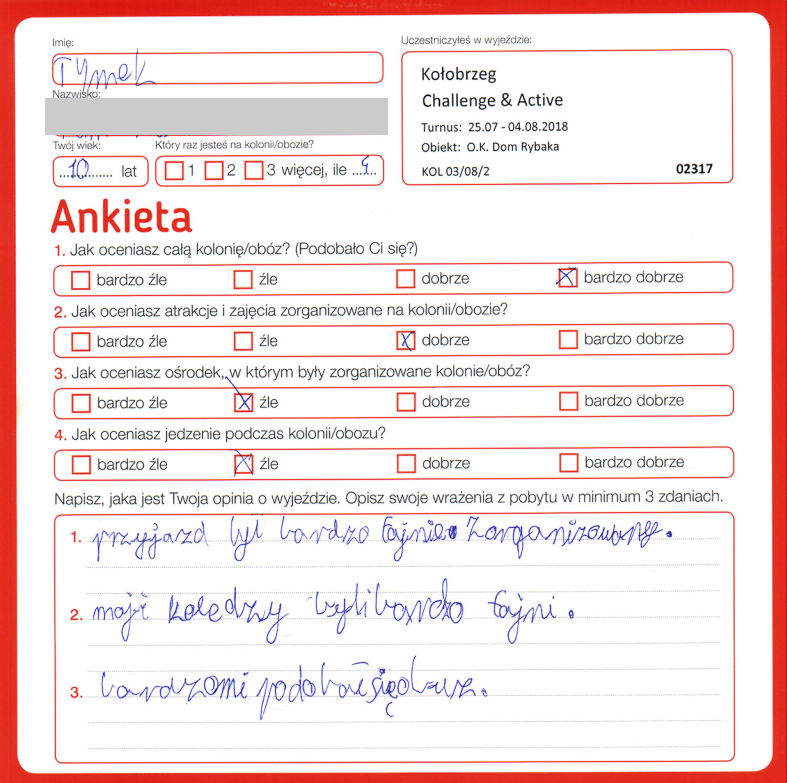 Imię:
Tymek
Nazwisko:
Twój wiek:
10 lat
Który raz jesteś na kolonii/obozie?
1 2 3 więcej, ile
Uczestniczyłeś w wyjeździe:
Kołobrzeg
Challenge & Active
Turnus: 25.07 - 04.08.2018
Obiekt: O.K. Dom Rybaka
KOL 03/08/2 02317
Ankieta
1. Jak oceniasz całą kolonię/obóz? (Podobało Ci się?)
bardzo źle źle dobrze bardzo dobrze
2. Jak oceniasz atrakcje i zajęcia zorganizowane na kolonii/obozie?
bardzo źle źle dobrze bardzo dobrze
3. Jak oceniasz ośrodek, w którym były zorganizowane kolonie/obóz?
bardzo źle źle dobrze bardzo dobrze
4. Jak oceniasz jedzenie podczas kolonii/obozu?
bardzo źle źle dobrze bardzo dobrze
Napisz, jaka jest Twoja opinia o wyjeździe. Opisz swoje wrażenia z pobytu w minimum 3 zdaniach.
1. przyjazd był bardzo fajnie zorganizowany.
2. moji koledzy byli bardzo fajni.
3. bardzomi podobał się obuz.